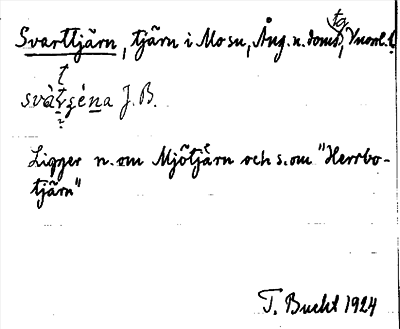 Svarttjärn, tjärn i Mo sn, Ång. n. doms, Vnorrl. l.
J. B.
Ligger n. om Mjötjärn och s. om "Herrbo-
tjärn"
T. Bucht 1924